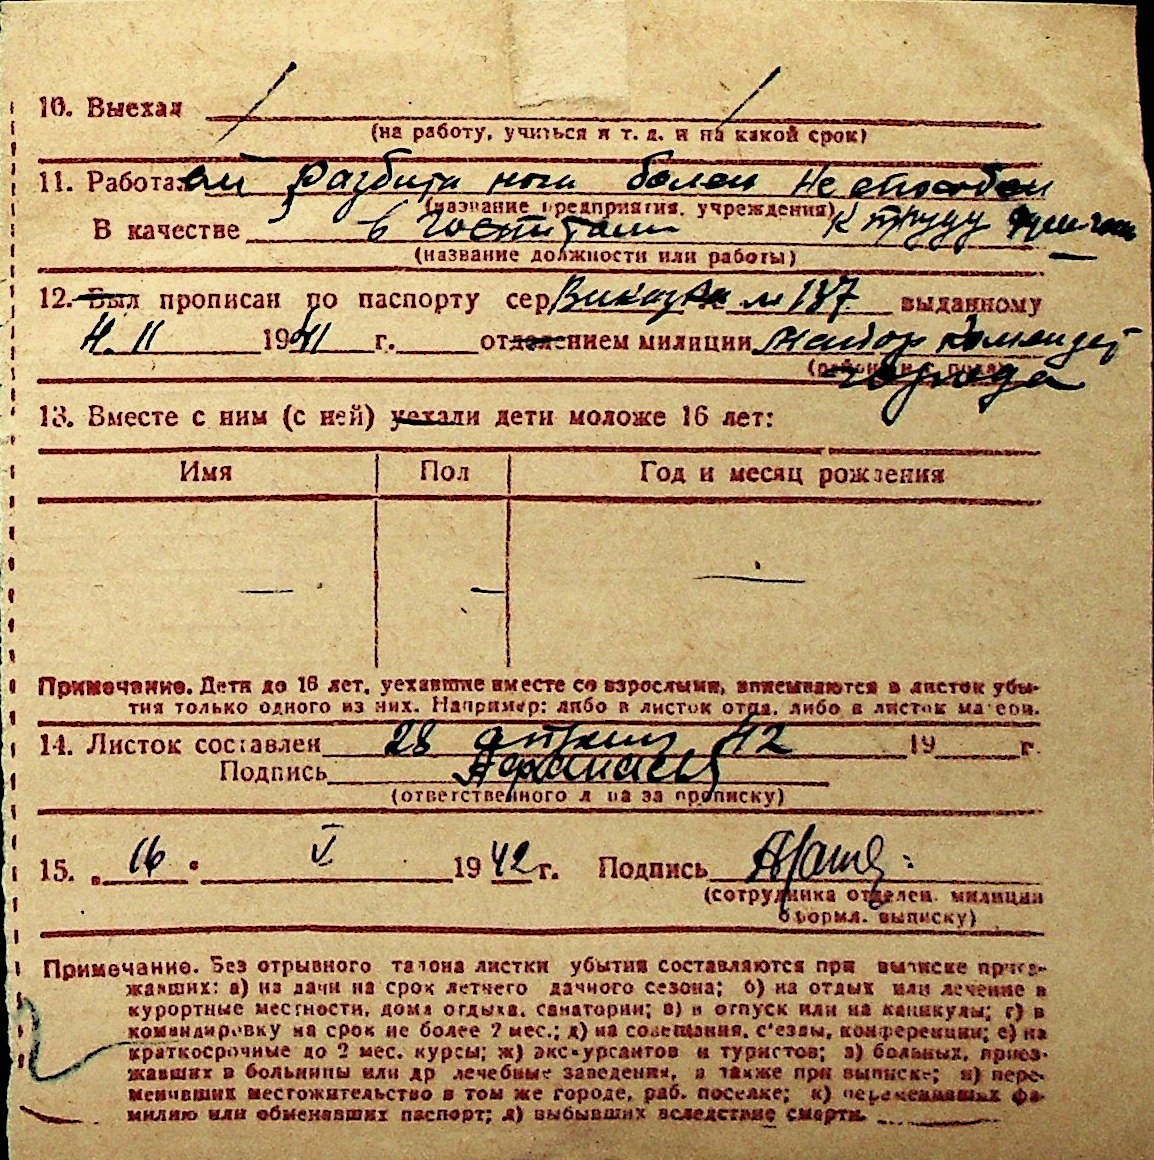 10. Выехал
(на работу, учиться и т. д. и на какой срок)
11. Работал разбиты ноги болен не способен
(название предприятия, учреждения)
к труду
В качестве в госпитали
(название должности или работы)
12. Был прописан по паспорту сер № 187 выданному
4. II 1941 г. отделением милиции майор
города
13. Вместе с ним (с ней) уехали дети моложе 16 лет:
Имя Пол Год и месяц рождения
— — —
Примечание. Дети до 16 лет, уехавшие вместе со взрослыми, вписываются в листок убы-
тия только одного из них. Например: либо в листок отца, либо в листок матери.
14. Листок составлен 28 апреля 42 19 г.
Подпись
(ответственного лица за прописку)
15. „16 " V 1942 г. Подпись
(сотрудника отделен. милиции
оформл. выписку)
Примечание. Без отрывного талона листки убытия составляются при выписке приез-
жавших: а) на дачи на срок летнего дачного сезона; б) на отдых или лечение в
курортные местности, дома отдыха, санатории; в) в отпуск или на каникулы; г) в
командировку на срок не более 2 мес.; д) на совещания, с'езды, конференции; е) на
краткосрочные до 2 мес. курсы; ж) экскурсантов и туристов; з) больных, приез-
жавших в больницы или др лечебные заведения, а также при выписке; и) пере-
менивших местожительство в том же городе, раб. поселке; к) переменивших фа-
милию или обменявших паспорт; л) выбывших вследствие смерти.